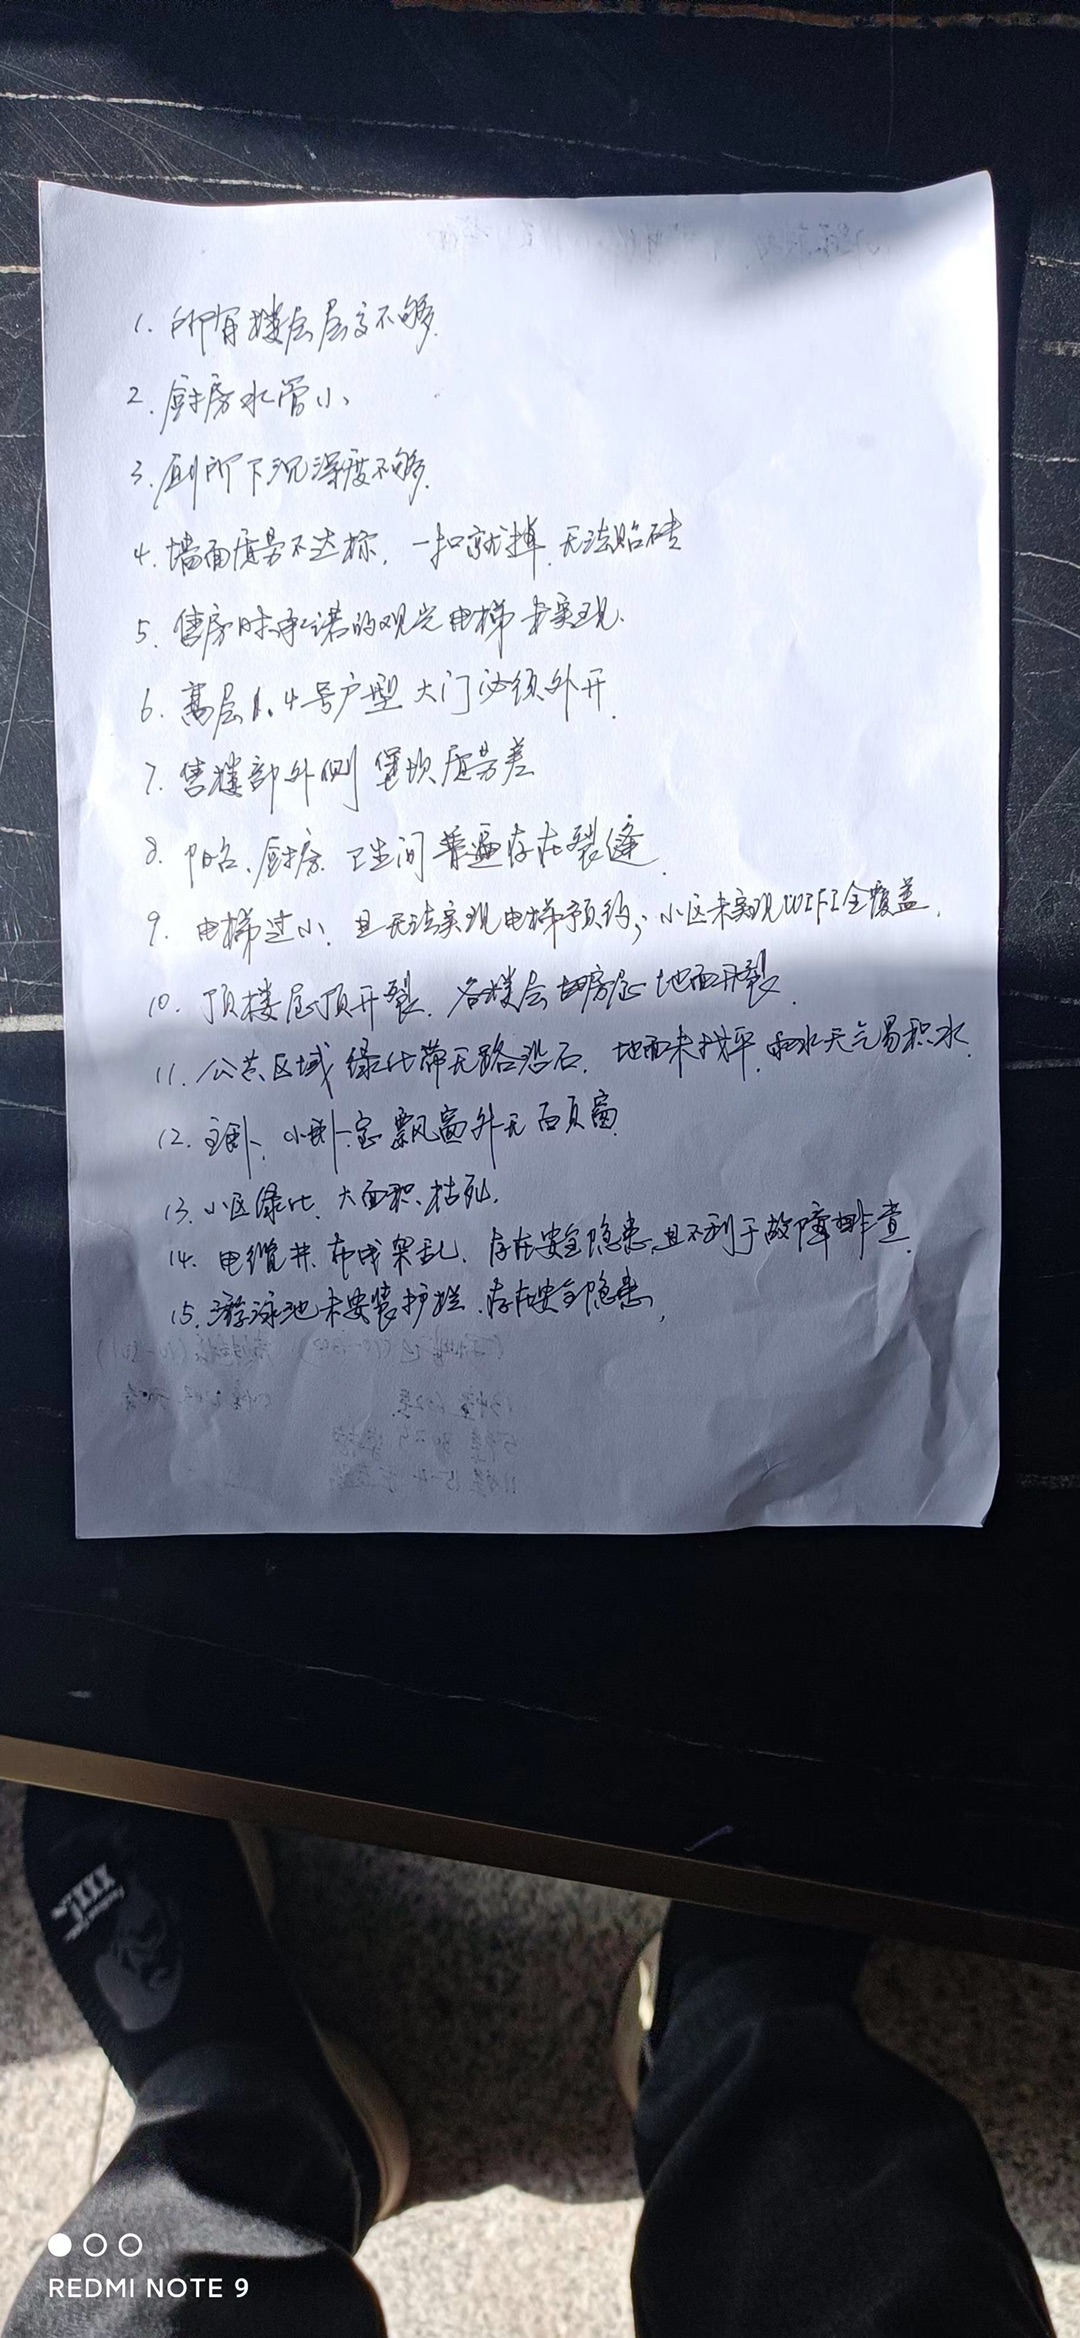 1. 所有楼层层高不够.
2. 厨房水管小、
3. 厕所下沉深度不够.
4. 墙面质量不达标, 一扣就掉, 无法贴砖
5. 售房时承诺的观光电梯未实现.
6. 高层1.4号户型 大门必须外开.
7. 售楼部外侧 堡坎质量差
8. 阳台、厨房. 卫生间普遍存在裂缝.
9. 电梯过小, 且无法实现电梯预约; 小区未实现WIFI全覆盖.
10. 顶楼屋顶开裂. 各楼层 地面开裂.
11. 公共区域 绿化带无路沿石. 地面未找平, 雨水天气易积水.
12. 主卧、小卧室飘窗外无百页窗
13. 小区绿化, 大面积枯死.
14. 电缆井布线杂乱, 存在安全隐患, 且不利于故障排查.
15. 游泳池未安装护栏. 存在安全隐患,
REDMI NOTE 9